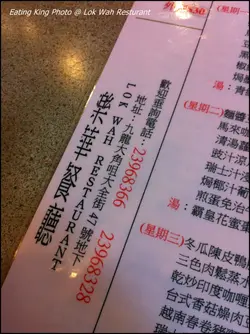 Eating King Photo @ Lok Wah Resturant
歡迎垂詢電話:23968366
地址:九龍大角咀大全街47號地下
23968328
LOK WAH RESTAURANT
樂華餐廳
湯:青
(星期二)麵醬
馬來
清湯蘿
豉汁
瑞士汁
焗椰汁
煎蛋免治
湯:霸皇花蜜棗
(星期三)冬瓜陳皮鴨
三色肉鬆蒸水
乾炒印度咖喱
台式香菇燥肉
越南春卷豬